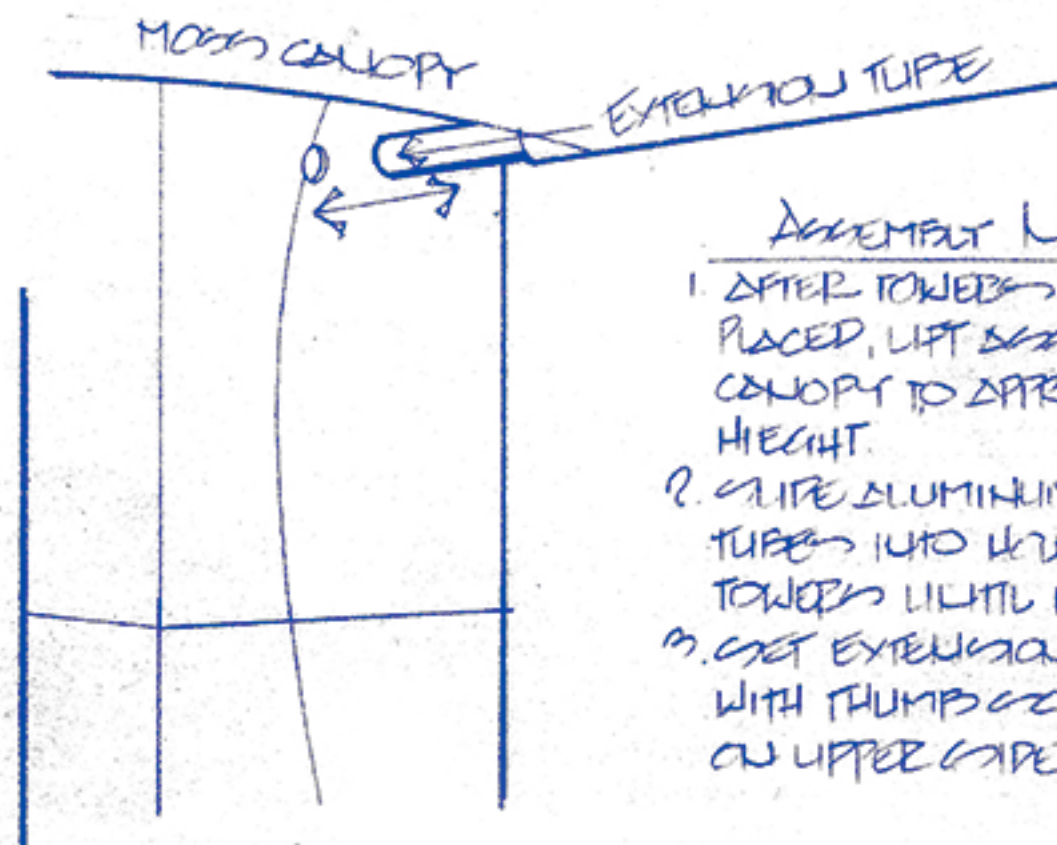 MOSS CANOPY
EXTENSION TUBE
ASSEMBLY N
1. AFTER TOWERS
PLACED, LIFT ASS
CANOPY TO APPR
HIEGHT.
2. SLIDE ALUMINU
TUBES INTO HOL
TOWERS UNTIL
3. SET EXTENSION
WITH THUMB SC
ON UPPER SIDE